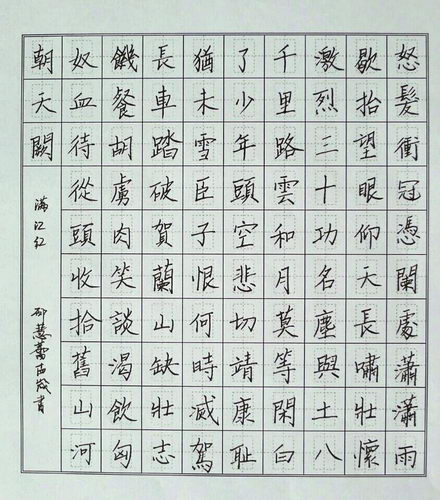 怒髮衝冠憑闌處瀟瀟雨
歇抬望眼仰天長嘯壯懷
激烈三十功名塵與土八
千里路雲和月莫等閑白
了少年頭空悲切靖康恥
猶未雪臣子恨何時滅駕
長車踏破賀蘭山缺壯志
饑餐胡虜肉笑談渴飲匈
奴血待從頭收拾舊山河
朝天闕
满江红